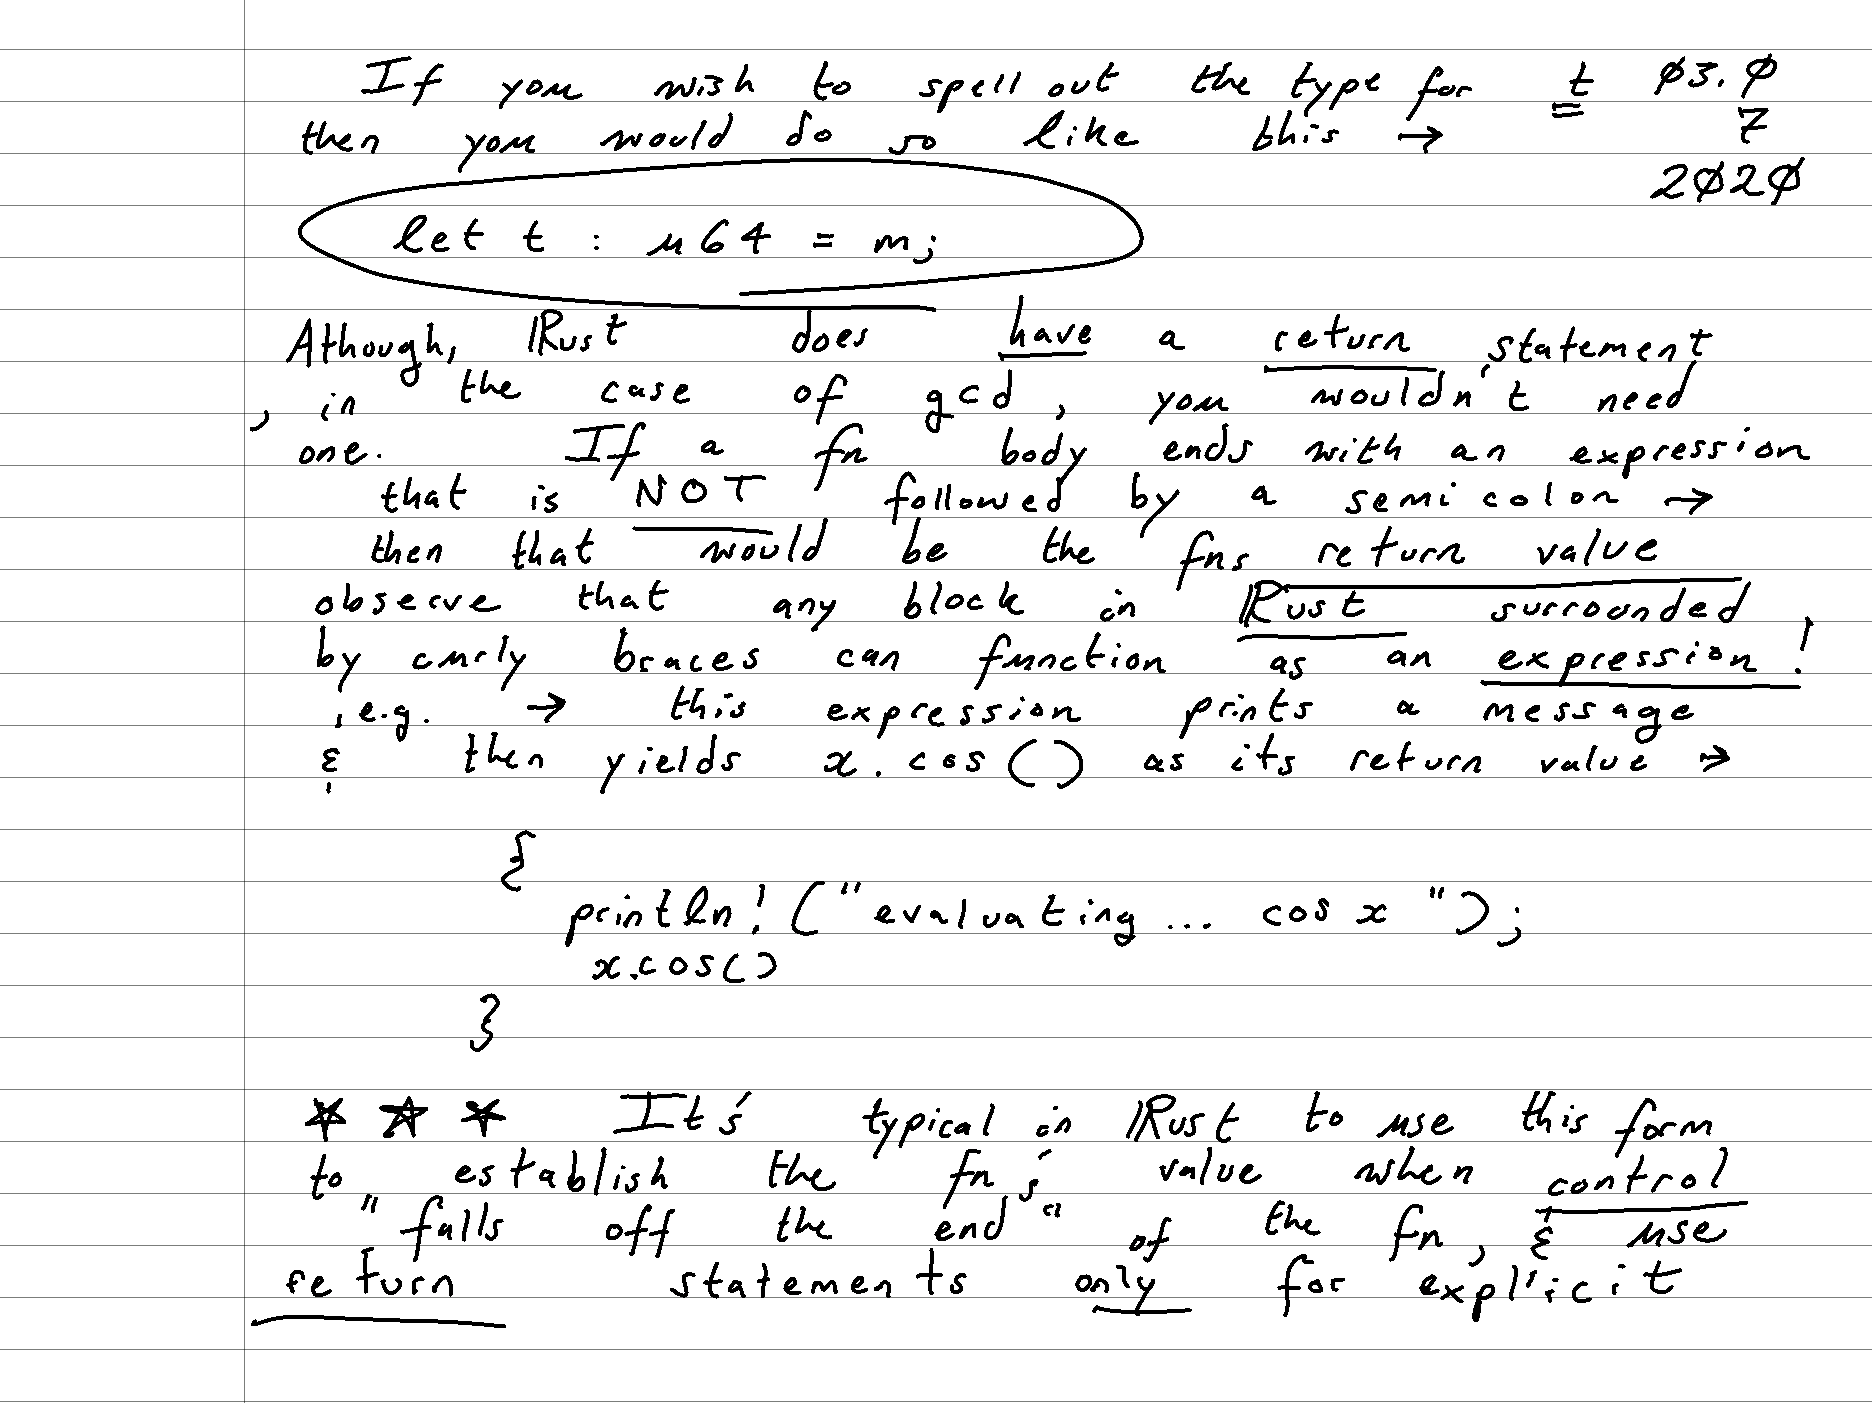 If you wish to spell out the type for t ø3.ø
then you would do so like this → 7
2ø2ø
let t : u64 = m;
Athough, Rust does have a return statement
, in the case of gcd, you wouldn't need
one. If a fn body ends with an expression
that is NOT followed by a semicolon →
then that would be the fns return value
observe that any block in Rust surrounded
by curly braces can function as an expression!
, e.g. → this expression prints a message
& then yields x.cos() as its return value →
{
println! ("evaluating... cos x ");
x.cos()
}
☆ ☆ ☆ It's typical in Rust to use this form
to establish the fn's value when control
"falls off the end" of the fn, & use
return statements only for explicit